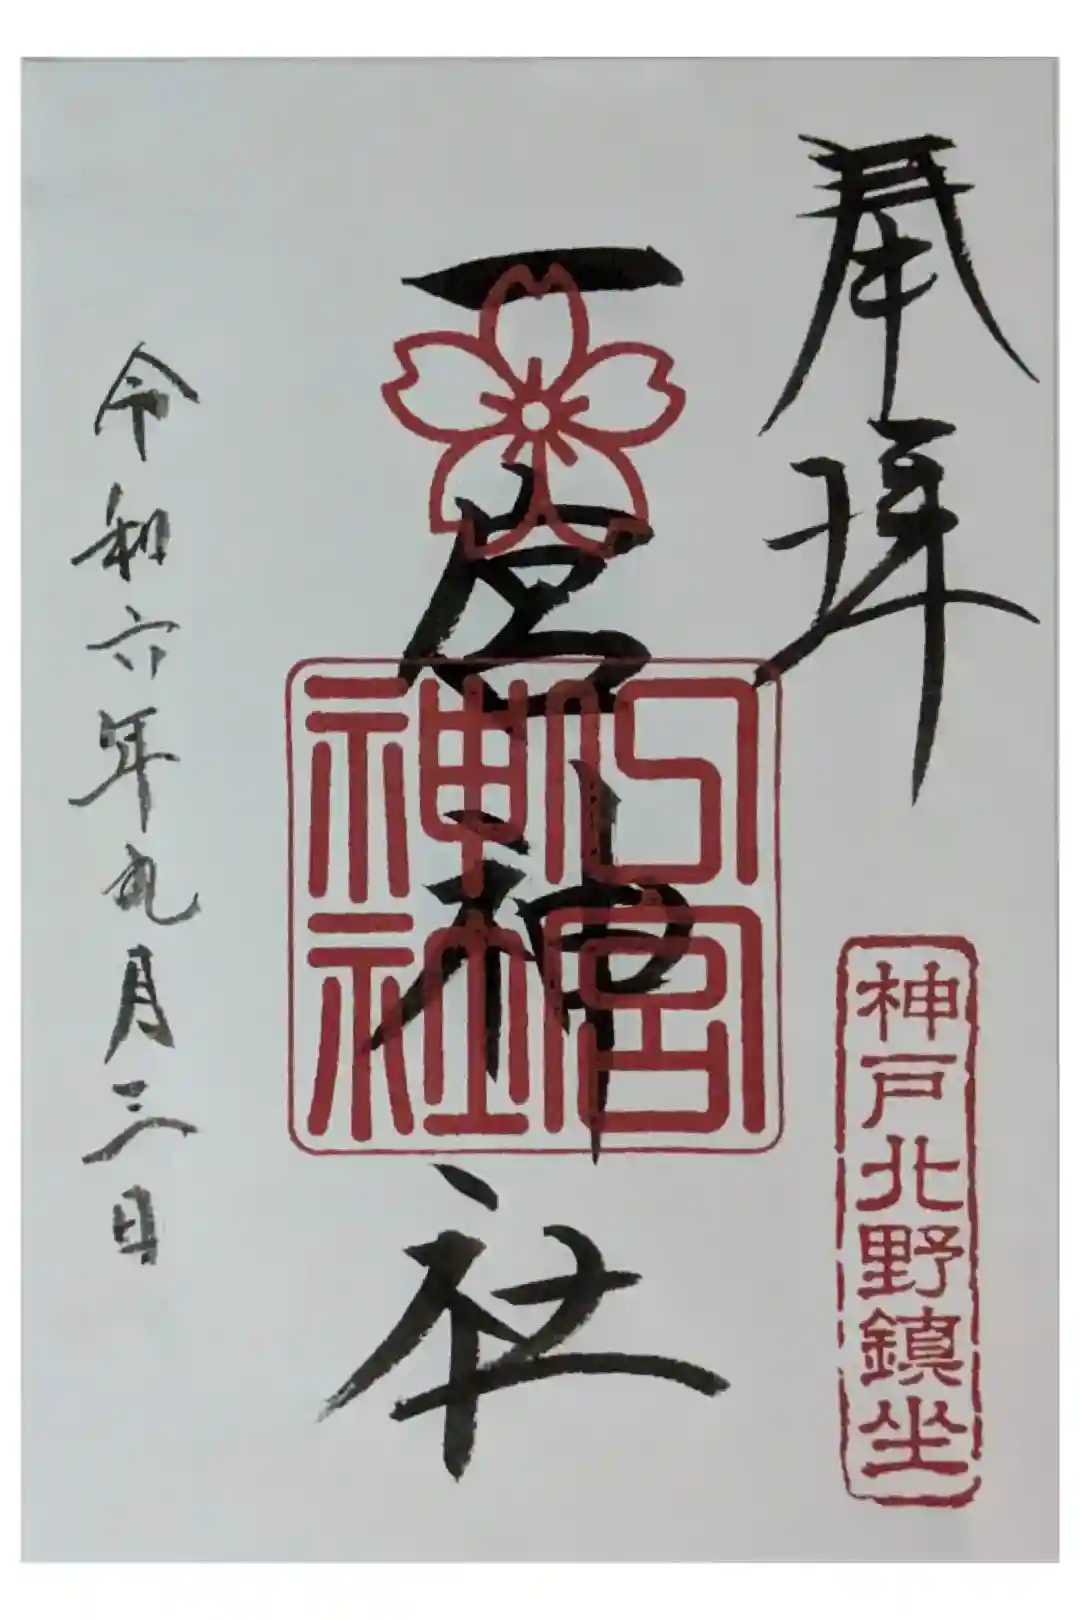 奉拝
神戸北野鎮坐
一宮神社
一宮神社
令和六年九月三日